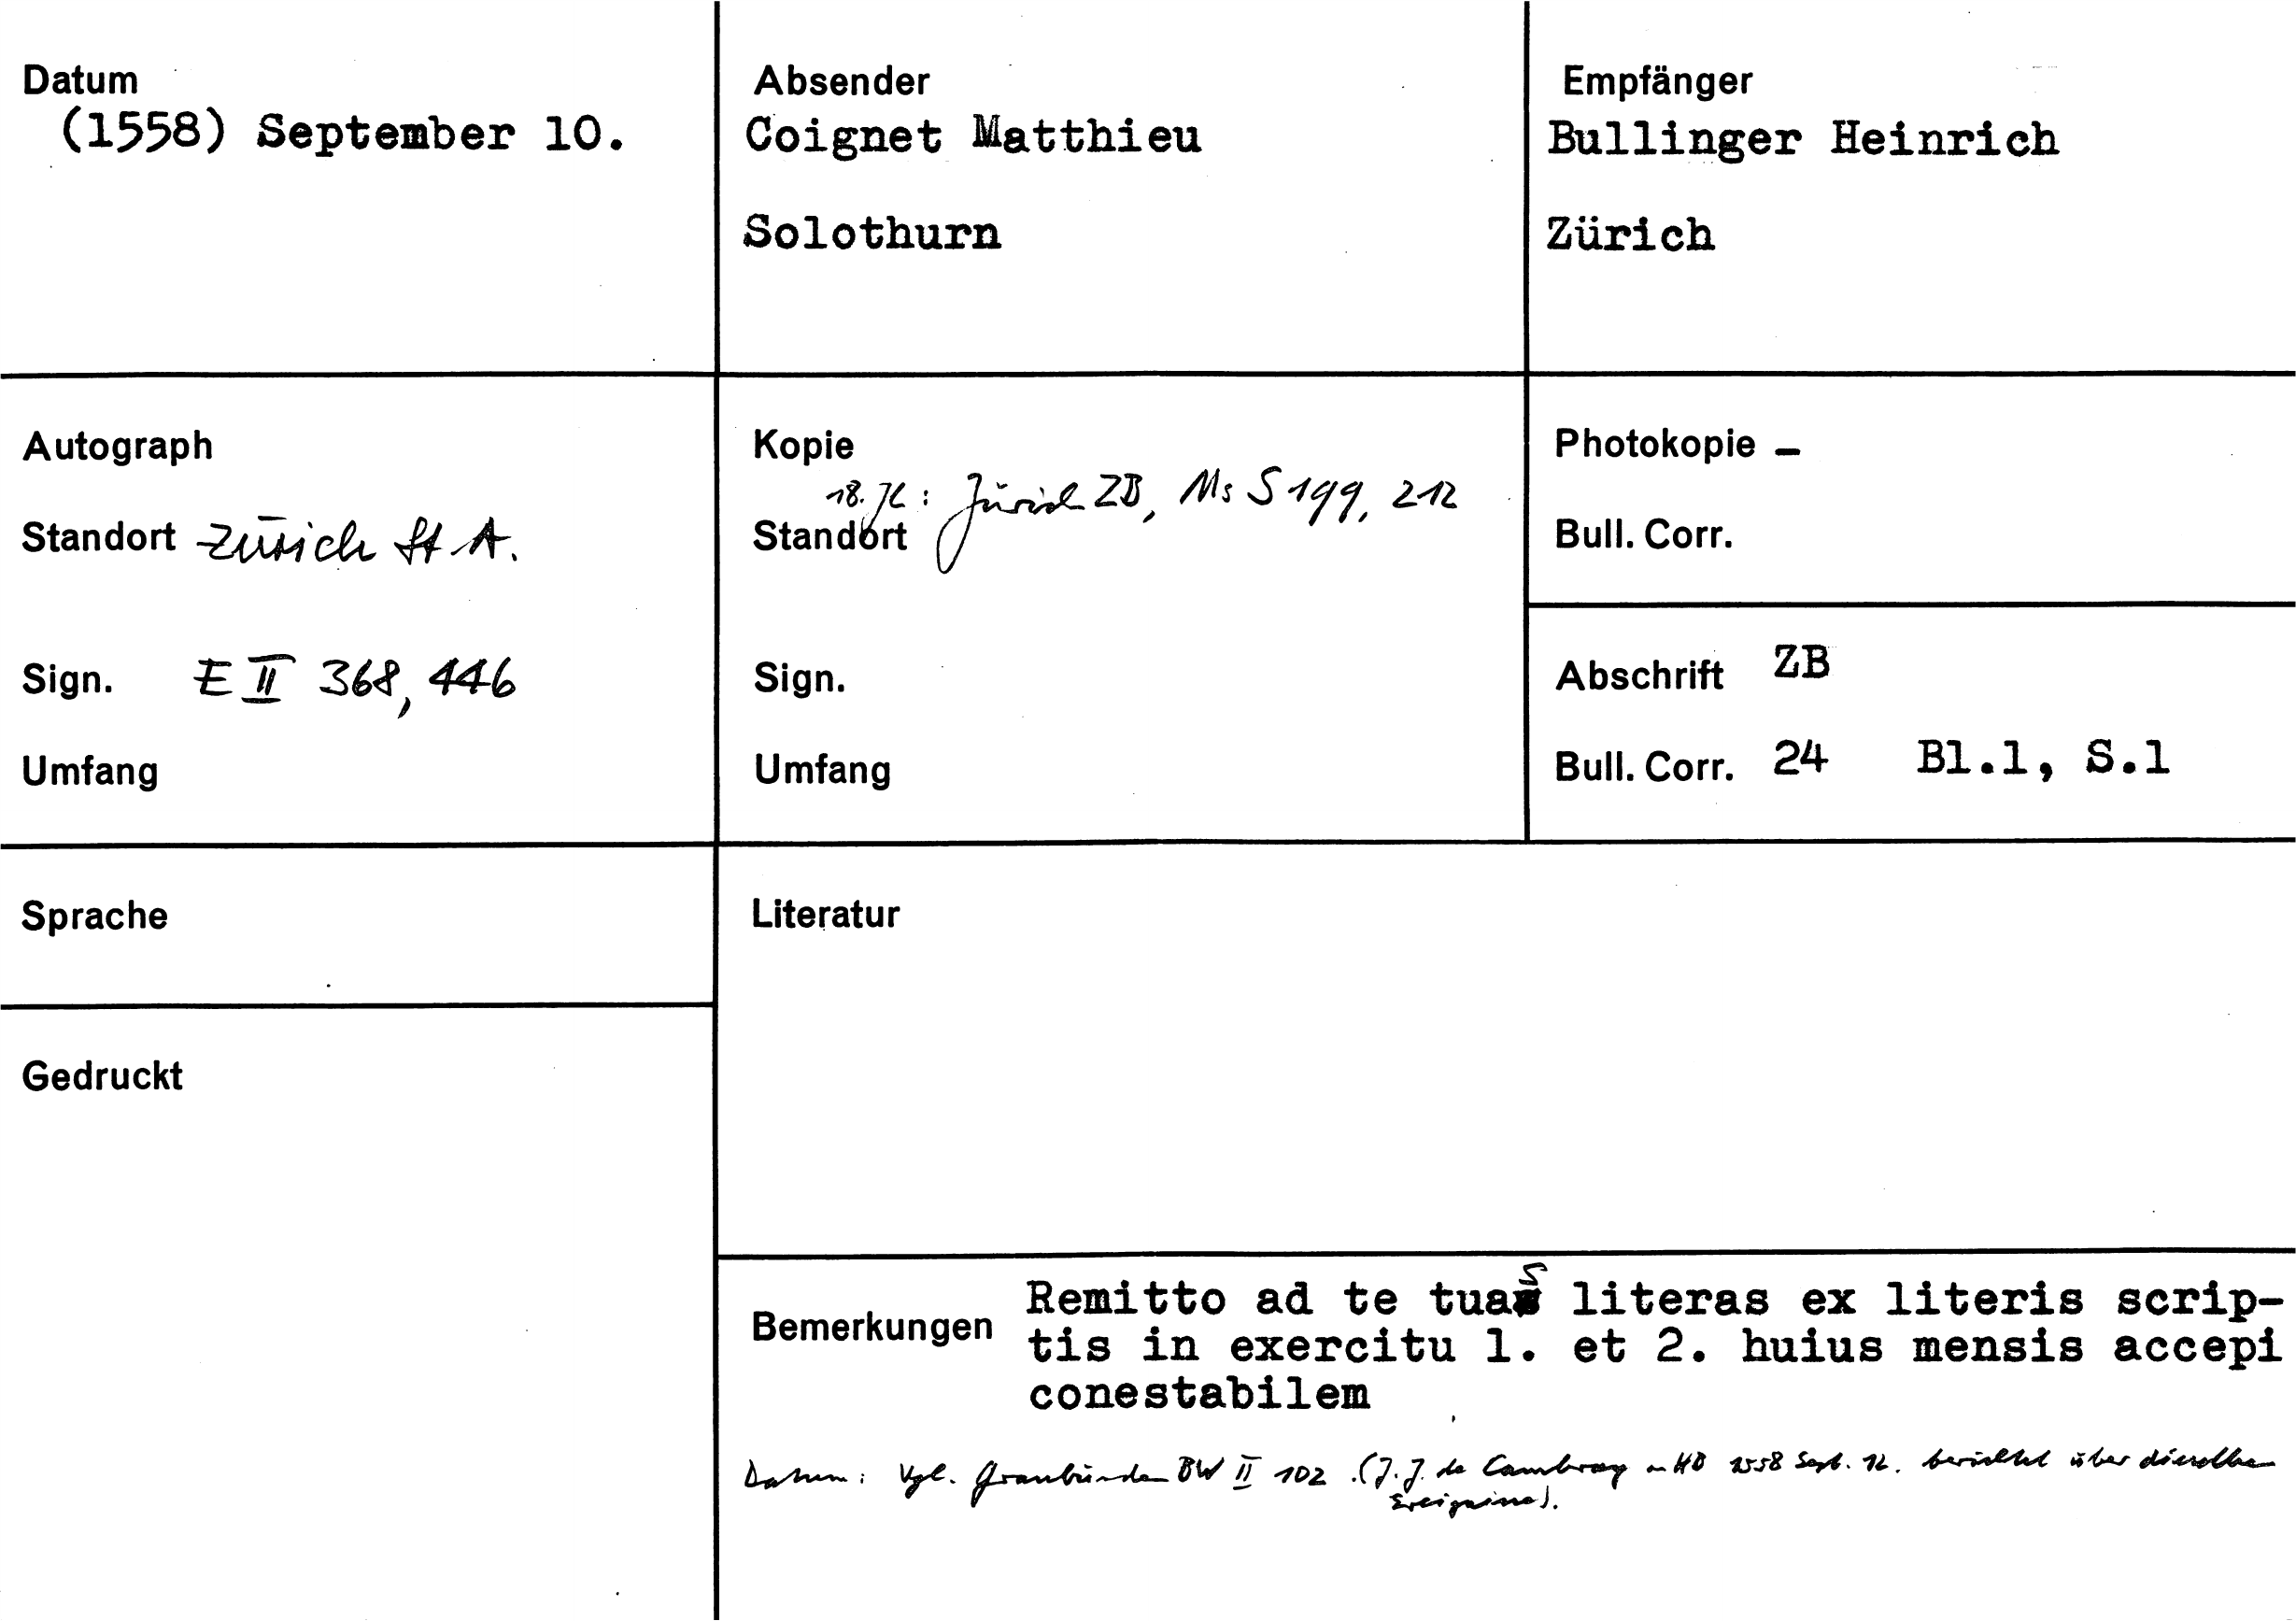 Datum
(1558) September 10.
Absender
Coignet Matthieu
Solothurn
Empfänger
Bullinger Heinrich
Zürich
Autograph
Standort Zürich StA.
Sign. E II 368, 446
Umfang
Kopie
18. Jh: Zürich ZB, Ms S 199, 212
Standort
Sign.
Umfang
Photokopie -
Bull. Corr.
Abschrift ZB
Bull. Corr. 24 Bl.1, S.1
Sprache
Gedruckt
Literatur
Bemerkungen
Remitto ad te tuas literas ex literis scrip-
tis in exercitu 1. et 2. huius mensis accepi
conestabilem
Datum: Vgl. Graubünden BW II 102. (J. J. de Cambray an HB 1558 Sept. 12. berichtet über dieselben
Ereignisse).